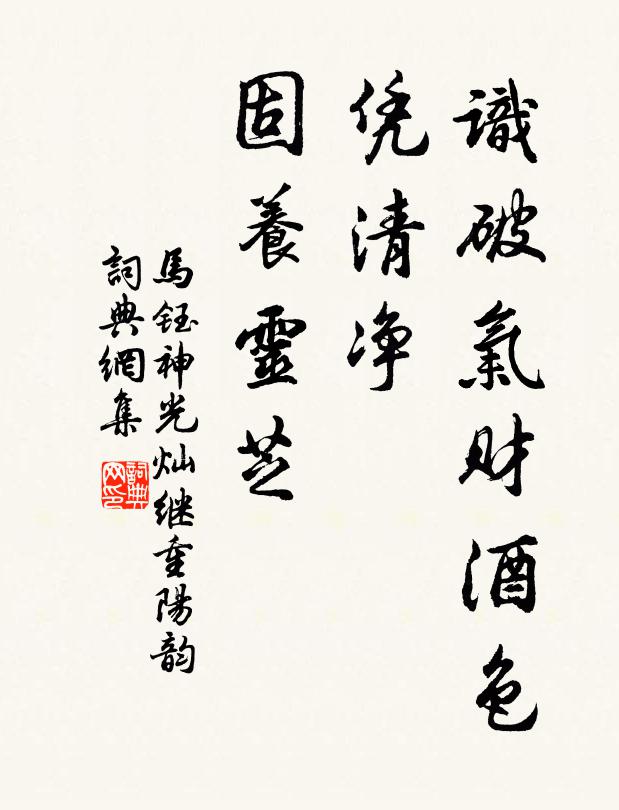 識破氣财酒色
凭清净
固養靈芝
馬鈺神光灿继重陽韵
詞典網集
詞典网印